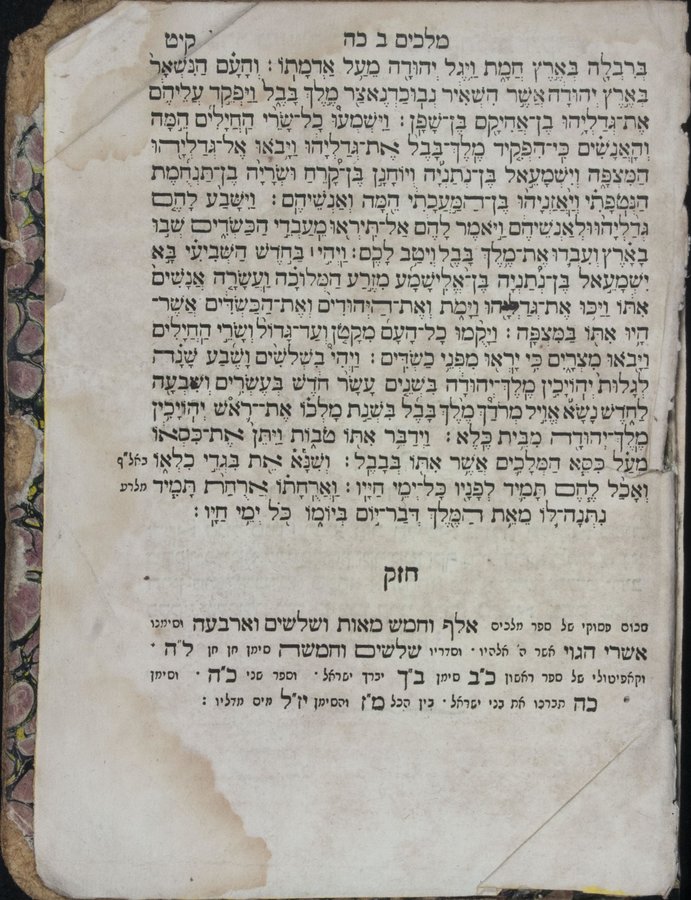 מלכים ב כה קיט
בְּרִבְלָה בְּאֶרֶץ חֲמָת וַיִּגֶל יְהוּדָה מֵעַל אַדְמָתוֹ׃ וְהָעָם הַנִּשְׁאָר
בְּאֶרֶץ יְהוּדָה אֲשֶׁר הִשְׁאִיר נְבוּכַדְנֶאצַּר מֶלֶךְ בָּבֶל וַיַּפְקֵד עֲלֵיהֶם
אֶת־גְּדַלְיָהוּ בֶּן־אֲחִיקָם בֶּן־שָׁפָן׃ וַיִּשְׁמְעוּ כָל־שָׂרֵי הַחֲיָלִים הֵמָּה
וְהָאֲנָשִׁים כִּי־הִפְקִיד מֶלֶךְ־בָּבֶל אֶת־גְּדַלְיָהוּ וַיָּבֹאוּ אֶל־גְּדַלְיָהוּ
הַמִּצְפָּה וְיִשְׁמָעֵאל בֶּן־נְתַנְיָה וְיוֹחָנָן בֶּן־קָרֵחַ וּשְׂרָיָה בֶן־תַּנְחֻמֶת
הַנְּטֹפָתִי וְיַאֲזַנְיָהוּ בֶּן־הַמַּעֲכָתִי הֵמָּה וְאַנְשֵׁיהֶם׃ וַיִּשָּׁבַע לָהֶם
גְּדַלְיָהוּ וּלְאַנְשֵׁיהֶם וַיֹּאמֶר לָהֶם אַל־תִּירְאוּ מֵעַבְדֵי הַכַּשְׂדִּים שְׁבוּ
בָאָרֶץ וְעִבְדוּ אֶת־מֶלֶךְ בָּבֶל וְיִטַב לָכֶם׃ וַיְהִי׀ בַּחֹדֶשׁ הַשְּׁבִיעִי בָּא
יִשְׁמָעֵאל בֶּן־נְתַנְיָה בֶּן־אֱלִישָׁמָע מִזֶּרַע הַמְּלוּכָה וַעֲשָׂרָה אֲנָשִׁים
אִתּוֹ וַיַּכּוּ אֶת־גְּדַלְיָהוּ וַיָּמֹת וְאֶת־הַיְּהוּדִים וְאֶת־הַכַּשְׂדִּים אֲשֶׁר־
הָיוּ אִתּוֹ בַּמִּצְפָּה׃ וַיָּקֻמוּ כָל־הָעָם מִקָּטֹן וְעַד־גָּדוֹל וְשָׂרֵי הַחֲיָלִים
וַיָּבֹאוּ מִצְרָיִם כִּי יָרְאוּ מִפְּנֵי כַשְׂדִּים׃ וַיְהִי בִשְׁלֹשִׁים וָשֶׁבַע שָׁנָה
לְגָלוּת יְהוֹיָכִין מֶלֶךְ־יְהוּדָה בִּשְׁנֵים עָשָׂר חֹדֶשׁ בְּעֶשְׂרִים וְשִׁבְעָה
לַחֹדֶשׁ נָשָׂא אֱוִיל מְרֹדַךְ מֶלֶךְ בָּבֶל בִּשְׁנַת מָלְכוֹ אֶת־רֹאשׁ יְהוֹיָכִין
מֶלֶךְ־יְהוּדָה מִבֵּית כֶּלֶא׃ וַיְדַבֵּר אִתּוֹ טֹבוֹת וַיִּתֵּן אֶת־כִּסְאוֹ
מֵעַל כִּסֵּא הַמְּלָכִים אֲשֶׁר אִתּוֹ בְּבָבֶל׃ וְשִׁנָּא אֵת בִּגְדֵי כִלְאוֹ באל״ף
וְאָכַל לֶחֶם תָּמִיד לְפָנָיו כָּל־יְמֵי חַיָּיו׃ וַאֲרֻחָתוֹ אֲרֻחַת תָּמִיד מלרע
נִתְּנָה־לּוֹ מֵאֵת הַמֶּלֶךְ דְּבַר־יוֹם בְּיוֹמוֹ כֹּל יְמֵי חַיָּו׃
חזק
סכום פסוקי של ספר מלכים אלף וחמש מאות ושלשים וארבעה וסימנו
אשרי הגוי אשר ה׳ אלהיו · וסדריו שלשים וחמשה סימן חן חן ל״ה ·
וקאפיטולי של ספר ראשון כ״ב סימן ב״ך יברך ישראל · וספר שני כ״ה · וסימן
כה תברכו את בני ישראל · בין הכל מ״ז והסימן יז״ל מים מדליו :